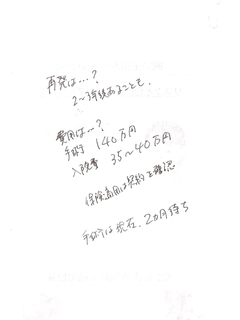 再発は…？
2～3年後あることも、
費用は…？
手術 140万円
入院費 35～40万円
保険適用は契約を確認
手術は現在、2カ月待ち